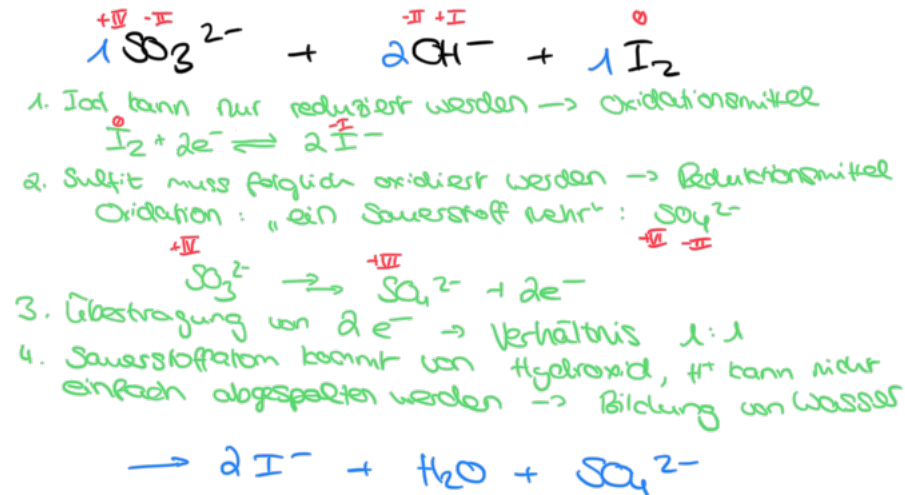 +IV -II -II +I 0
1 SO₃²⁻ + 2 OH⁻ + 1 I₂
1. Iod kann nur reduziert werden → Oxidationsmittel
0 -I
I₂ + 2e⁻ ⇌ 2 I⁻
2. Sulfit muss folglich oxidiert werden → Reduktionsmittel
Oxidation: „ein Sauerstoff mehr“: SO₄²⁻
+VI -II
+IV +VI
SO₃²⁻ ⇌ SO₄²⁻ + 2e⁻
3. Übertragung von 2 e⁻ → Verhältnis 1:1
4. Sauerstoffatom kommt von Hydroxid, H⁺ kann nicht
einfach abgespalten werden → Bildung von Wasser
→ 2 I⁻ + H₂O + SO₄²⁻